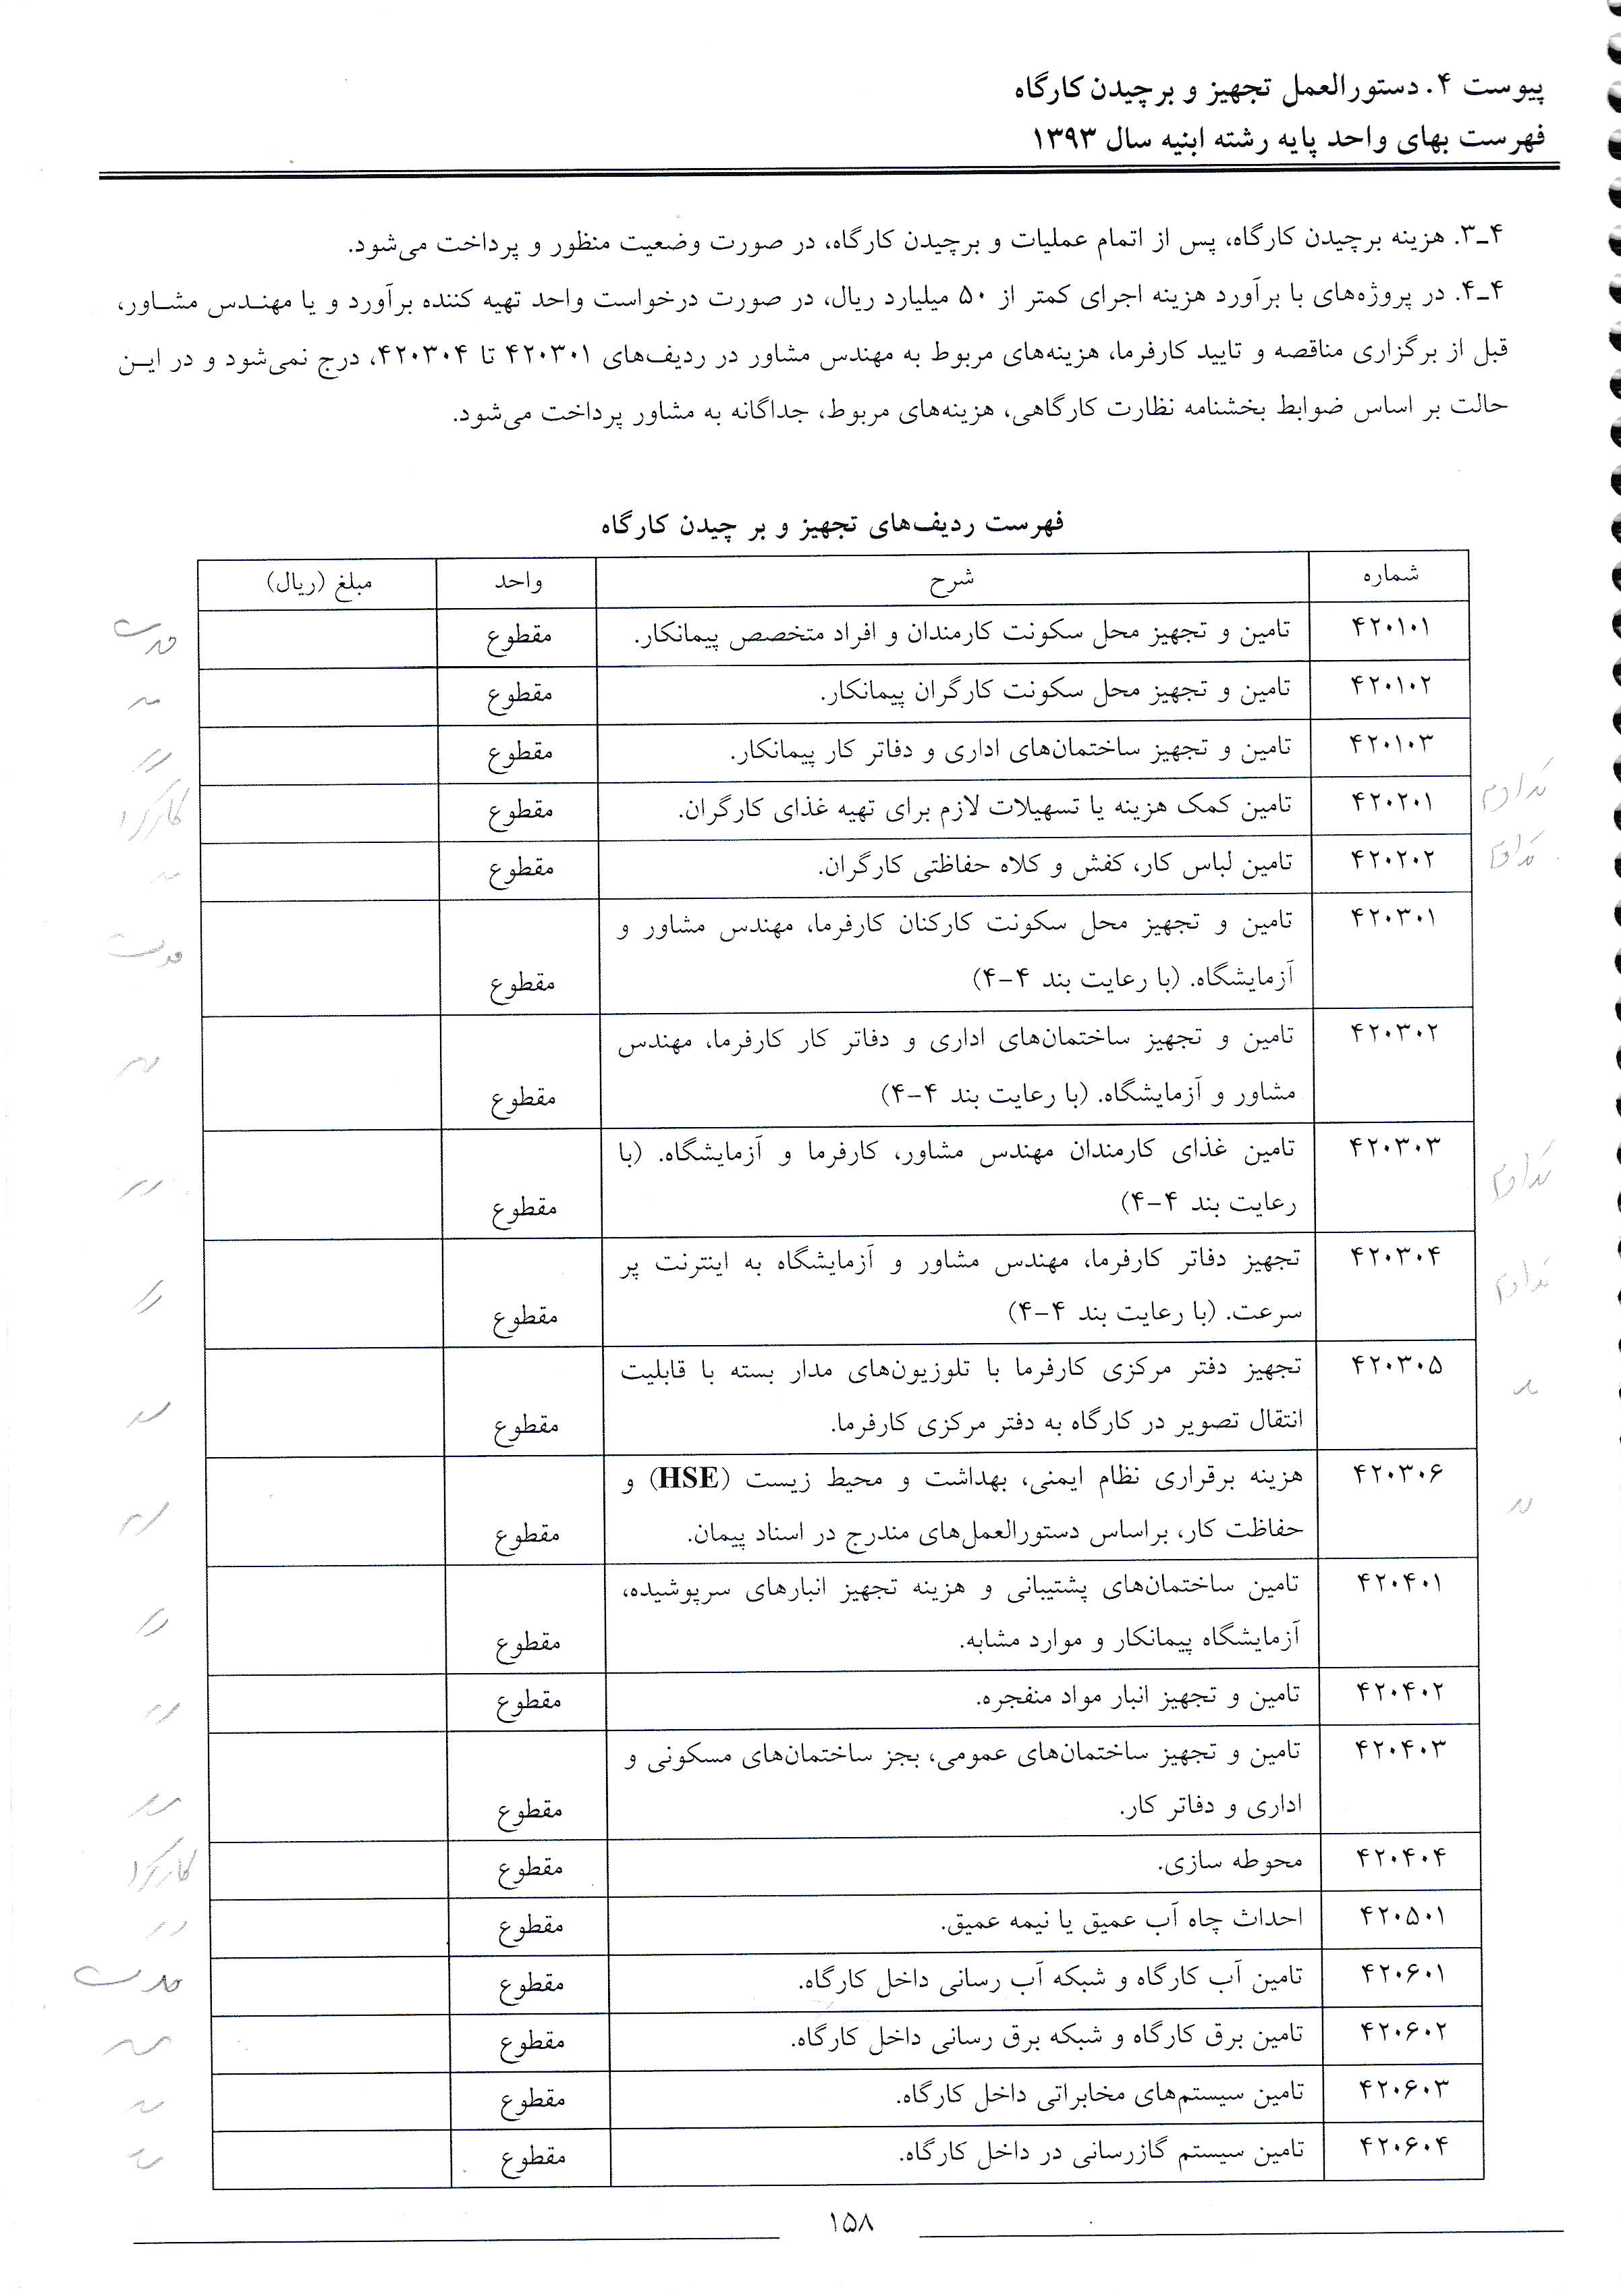 پیوست ۴. دستورالعمل تجهیز و برچیدن کارگاه
فهرست بهای واحد پایه رشته ابنیه سال ۱۳۹۳
۴ـ۳. هزینه برچیدن کارگاه، پس از اتمام عملیات و برچیدن کارگاه، در صورت وضعیت منظور و پرداخت می‌شود.
۴ـ۴. در پروژه‌های با برآورد هزینه اجرای کمتر از ۵۰ میلیارد ریال، در صورت درخواست واحد تهیه کننده برآورد و یا مهندس مشاور،
قبل از برگزاری مناقصه و تایید کارفرما، هزینه‌های مربوط به مهندس مشاور در ردیف‌های ۴۲۰۳۰۱ تا ۴۲۰۳۰۴، درج نمی‌شود و در این
حالت بر اساس ضوابط بخشنامه نظارت کارگاهی، هزینه‌های مربوط، جداگانه به مشاور پرداخت می‌شود.
فهرست ردیف‌های تجهیز و بر چیدن کارگاه
شماره شرح واحد مبلغ (ریال)
۴۲۰۱۰۱ تامین و تجهیز محل سکونت کارمندان و افراد متخصص پیمانکار. مقطوع
۴۲۰۱۰۲ تامین و تجهیز محل سکونت کارگران پیمانکار. مقطوع
۴۲۰۱۰۳ تامین و تجهیز ساختمان‌های اداری و دفاتر کار پیمانکار. مقطوع
۴۲۰۲۰۱ تامین کمک هزینه یا تسهیلات لازم برای تهیه غذای کارگران. مقطوع
۴۲۰۲۰۲ تامین لباس کار، کفش و کلاه حفاظتی کارگران. مقطوع
۴۲۰۳۰۱ تامین و تجهیز محل سکونت کارکنان کارفرما، مهندس مشاور و
آزمایشگاه. (با رعایت بند ۴-۴) مقطوع
۴۲۰۳۰۲ تامین و تجهیز ساختمان‌های اداری و دفاتر کار کارفرما، مهندس
مشاور و آزمایشگاه. (با رعایت بند ۴-۴) مقطوع
۴۲۰۳۰۳ تامین غذای کارمندان مهندس مشاور، کارفرما و آزمایشگاه. (با
رعایت بند ۴-۴) مقطوع
۴۲۰۳۰۴ تجهیز دفاتر کارفرما، مهندس مشاور و آزمایشگاه به اینترنت پر
سرعت. (با رعایت بند ۴-۴) مقطوع
۴۲۰۳۰۵ تجهیز دفتر مرکزی کارفرما با تلوزیون‌های مدار بسته با قابلیت
انتقال تصویر در کارگاه به دفتر مرکزی کارفرما. مقطوع
۴۲۰۳۰۶ هزینه برقراری نظام ایمنی، بهداشت و محیط زیست (HSE) و
حفاظت کار، براساس دستورالعمل‌های مندرج در اسناد پیمان. مقطوع
۴۲۰۴۰۱ تامین ساختمان‌های پشتیبانی و هزینه تجهیز انبارهای سرپوشیده،
آزمایشگاه پیمانکار و موارد مشابه. مقطوع
۴۲۰۴۰۲ تامین و تجهیز انبار مواد منفجره. مقطوع
۴۲۰۴۰۳ تامین و تجهیز ساختمان‌های عمومی، بجز ساختمان‌های مسکونی و
اداری و دفاتر کار. مقطوع
۴۲۰۴۰۴ محوطه سازی. مقطوع
۴۲۰۵۰۱ احداث چاه آب عمیق یا نیمه عمیق. مقطوع
۴۲۰۶۰۱ تامین آب کارگاه و شبکه آب رسانی داخل کارگاه. مقطوع
۴۲۰۶۰۲ تامین برق کارگاه و شبکه برق رسانی داخل کارگاه. مقطوع
۴۲۰۶۰۳ تامین سیستم‌های مخابراتی داخل کارگاه. مقطوع
۴۲۰۶۰۴ تامین سیستم گازرسانی در داخل کارگاه. مقطوع
۱۵۸